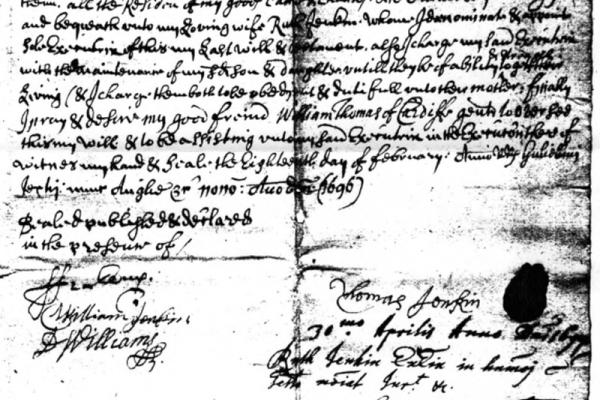 them, all the Residue of my goods
and bequeath unto my Loving wife Ruth Jenkin. whom I do nominate & appoint
sole Executrix of this my Last will & testament. also I charge my said Executrix
with the maintenance of my son & daughter untill they be of abillity to gett their
Living (& I charge them both to be obedient & dutifull unto their mother) finally
I pray & desire my good freind William Thomas of Cardiffe gent: to oversee
this my will & to be assisting unto my said Executrix in the Execution thereof
witnes my hand & seale the Eighteenth day of February. Anno Gulielmi
tertij nunc Anglie &c nono: Anno dom (1696)
Sealed published & declared
in the presence of /
William Jenkins
D Williams
Thomas Jenkin
30mo Aprilis Anno
Ruth Jenkin
Jurt &c.